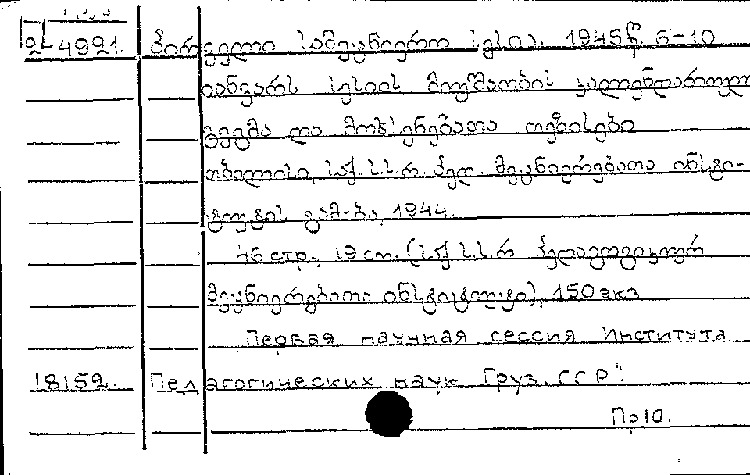 2-4921. პირველი სამეცნიერო სესია. 1945წ. 6-10
იანვარს სესიის მუშაობის კალენდარული
გეგმა და მოხსენებათა თეზისები
თბილისი, საქ.ს.ს.რ. პედ. მეცნიერებათა ინსტი-
ტუტის გამ-ბა, 1944.
46 стр., 19 см. (საქ.ს.ს.რ პედაგოგიკურ
მეცნიერებათა ინსტიტუტი), 150 экз
Первая научная сессия Института
18152. Педагогических наук Груз.ССР".
Пр10.